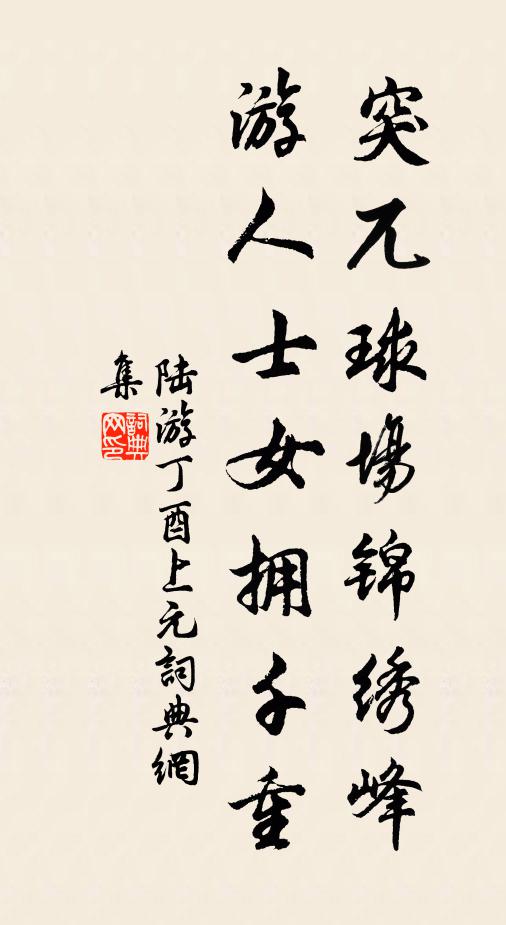 突兀球場锦绣峰
游人士女拥千重
陆游丁酉上元詞典網
集
詞典网印